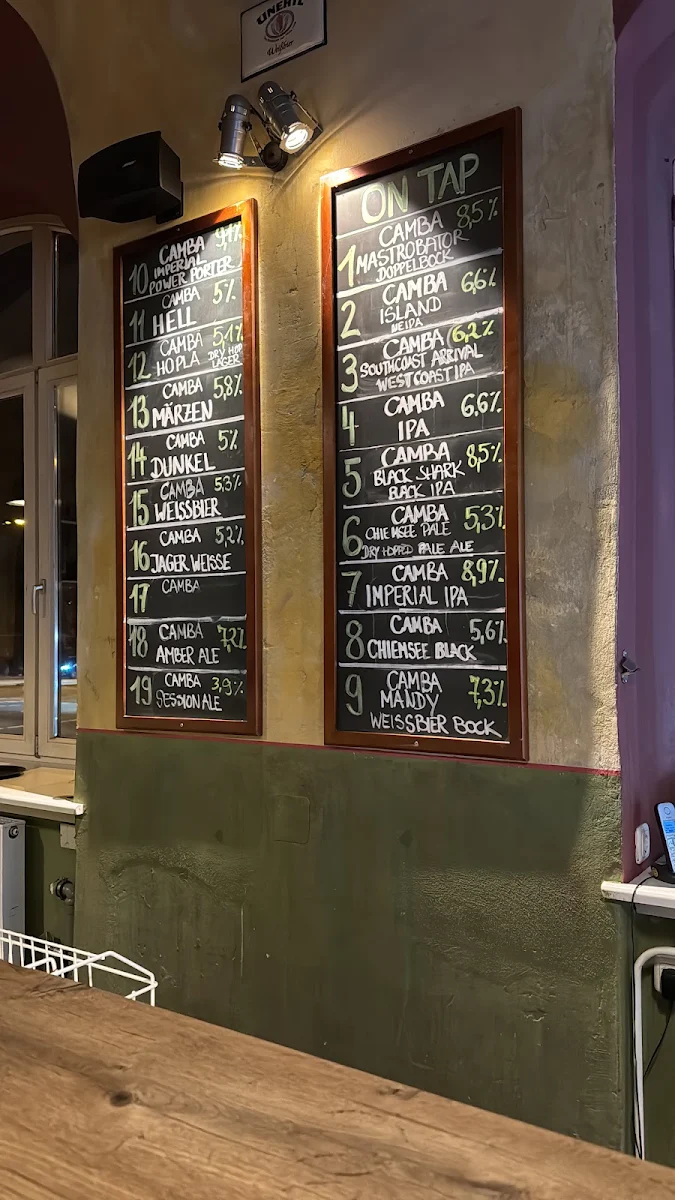 UNERTL
Weißbier
ON TAP
1 CAMBA 8,5%
MASTROBATOR
DOPPELBOCK
2 CAMBA 6,6%
ISLAND
NEIPA
3 CAMBA 6,2%
SOUTHCOAST ARRIVAL
WESTCOAST IPA
4 CAMBA 6,6%
IPA
5 CAMBA 8,5%
BLACK SHARK
BLACK IPA
6 CAMBA 5,3%
CHIEMSEE PALE
DRY HOPPED PALE ALE
7 CAMBA 8,9%
IMPERIAL IPA
8 CAMBA 5,6%
CHIEMSEE BLACK
9 CAMBA 7,3%
MANDY
WEISSBIER BOCK
10 CAMBA 9,1%
IMPERIAL
POWER PORTER
11 CAMBA 5%
HELL
12 CAMBA 5,1%
HOPLA DRY HOP
LAGER
13 CAMBA 5,8%
MÄRZEN
14 CAMBA 5%
DUNKEL
15 CAMBA 5,3%
WEISSBIER
16 CAMBA 5,2%
JAGER WEISSE
17 CAMBA
18 CAMBA 7,2%
AMBER ALE
19 CAMBA 3,9%
SESSION ALE